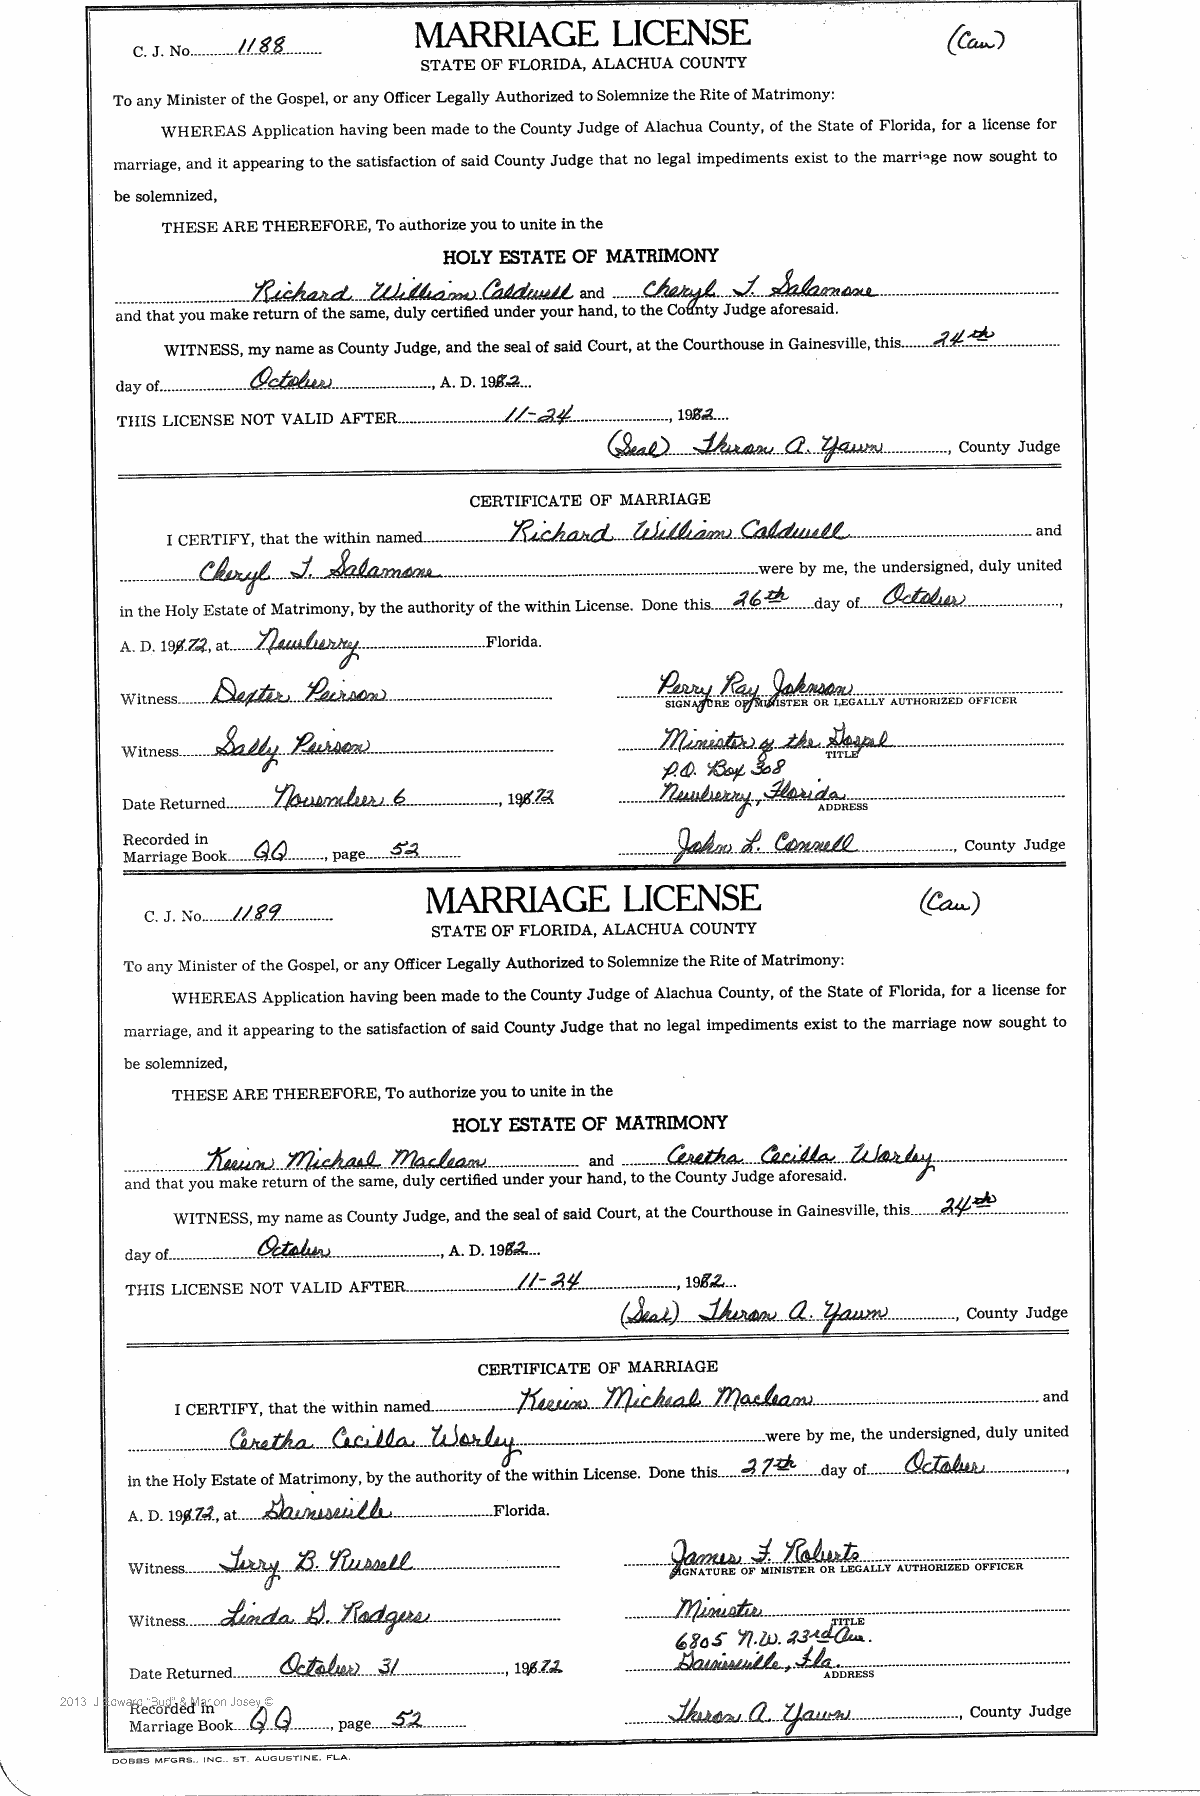 C. J. No. 1188 MARRIAGE LICENSE (Cau)
STATE OF FLORIDA, ALACHUA COUNTY
To any Minister of the Gospel, or any Officer Legally Authorized to Solemnize the Rite of Matrimony:
WHEREAS Application having been made to the County Judge of Alachua County, of the State of Florida, for a license for
marriage, and it appearing to the satisfaction of said County Judge that no legal impediments exist to the marriage now sought to
be solemnized,
THESE ARE THEREFORE, To authorize you to unite in the
HOLY ESTATE OF MATRIMONY
Richard William Caldwell and Cheryl T. Salamone
and that you make return of the same, duly certified under your hand, to the County Judge aforesaid.
WITNESS, my name as County Judge, and the seal of said Court, at the Courthouse in Gainesville, this 24th
day of October, A. D. 1972
THIS LICENSE NOT VALID AFTER 11-24, 1972
(Seal) Theron A. Yawn, County Judge
CERTIFICATE OF MARRIAGE
I CERTIFY, that the within named Richard William Caldwell and
Cheryl T. Salamone were by me, the undersigned, duly united
in the Holy Estate of Matrimony, by the authority of the within License. Done this 26th day of October,
A. D. 1972, at Newberry Florida.
Witness Dexter Peirson Perry Ray Johnson
SIGNATURE OF MINISTER OR LEGALLY AUTHORIZED OFFICER
Witness Sally Peirson Minister of the Gospel
TITLE
P.O. Box 308
Date Returned November 6, 1972 Newberry, Florida
ADDRESS
Recorded in
Marriage Book QQ, page 52 John L. Connell, County Judge
C. J. No. 1189 MARRIAGE LICENSE (Cau)
STATE OF FLORIDA, ALACHUA COUNTY
To any Minister of the Gospel, or any Officer Legally Authorized to Solemnize the Rite of Matrimony:
WHEREAS Application having been made to the County Judge of Alachua County, of the State of Florida, for a license for
marriage, and it appearing to the satisfaction of said County Judge that no legal impediments exist to the marriage now sought to
be solemnized,
THESE ARE THEREFORE, To authorize you to unite in the
HOLY ESTATE OF MATRIMONY
Kevin Michael Maclean and Ceretha Cecilla Worley
and that you make return of the same, duly certified under your hand, to the County Judge aforesaid.
WITNESS, my name as County Judge, and the seal of said Court, at the Courthouse in Gainesville, this 24th
day of October, A. D. 1972
THIS LICENSE NOT VALID AFTER 11-24, 1972
(Seal) Theron A. Yawn, County Judge
CERTIFICATE OF MARRIAGE
I CERTIFY, that the within named Kevin Micheal Maclean and
Ceretha Cecilla Worley were by me, the undersigned, duly united
in the Holy Estate of Matrimony, by the authority of the within License. Done this 27th day of October,
A. D. 1972, at Gainesville Florida.
Witness Terry B. Russell James F. Roberts
SIGNATURE OF MINISTER OR LEGALLY AUTHORIZED OFFICER
Witness Linda G. Rodgers Minister
TITLE
6805 N.W. 23rd Ave.
Date Returned October 31, 1972 Gainesville, Fla.
ADDRESS
2013 J Edward "Bud" & Marion Josey ©
Recorded in
Marriage Book QQ, page 52 Theron A. Yawn, County Judge
DOBBS MFGRS., INC., ST. AUGUSTINE, FLA.